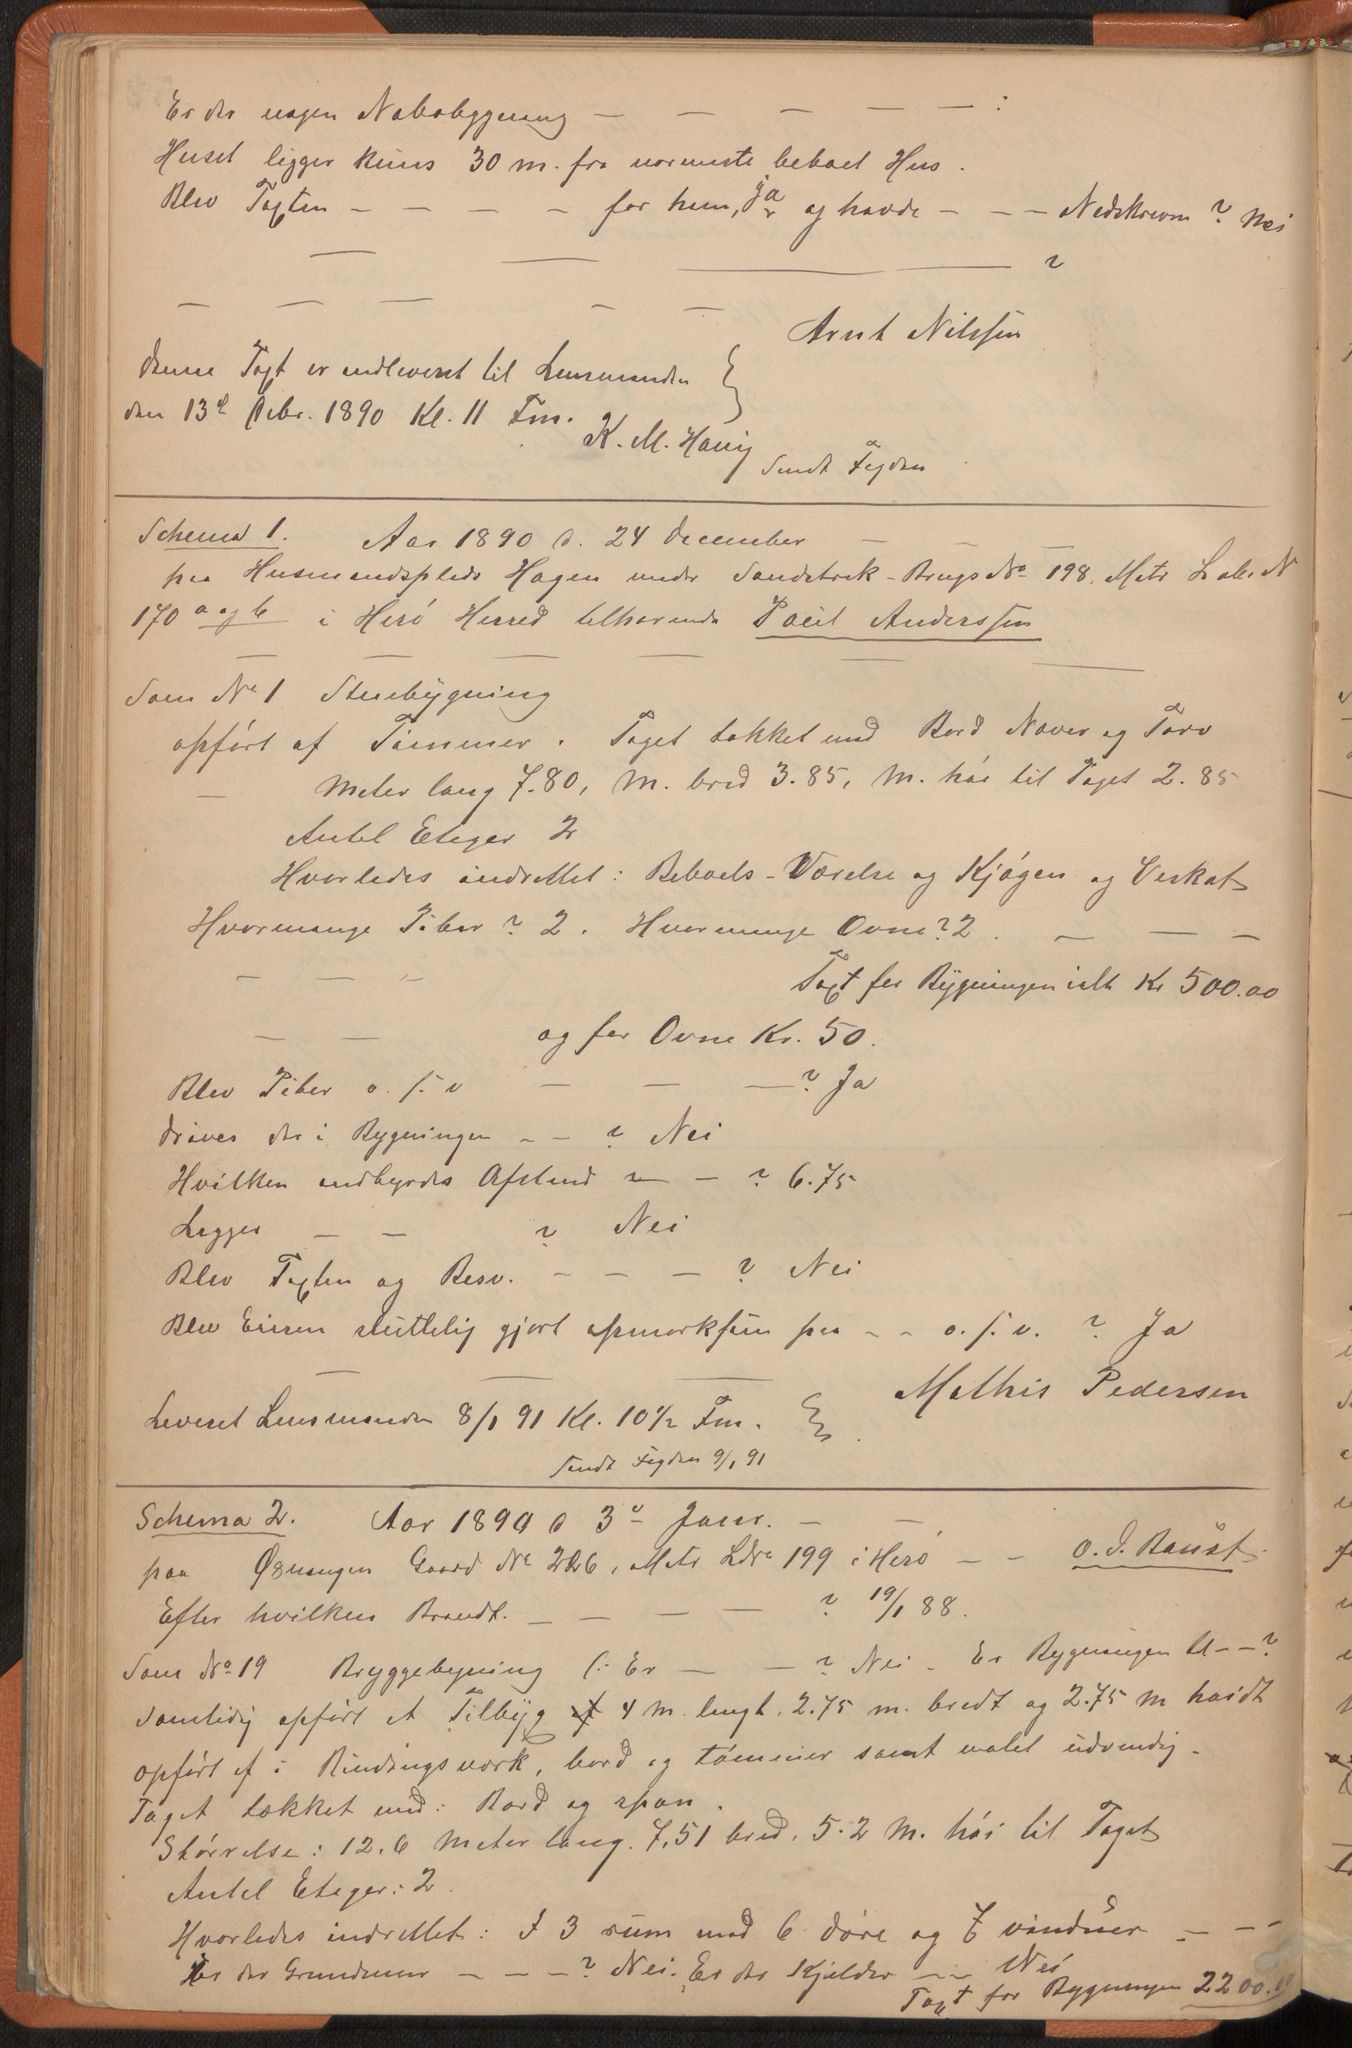 Er der nogen Nabobygning — — — — — :
Huset ligger kuns 30 m. fra nærmeste beboet Hus.
Blev Taxten — — — — for ham, ja og havde — — — Nedskreven ? Nei
— — — — ?
— — — — —
Arnt Nilssen
Denne Taxt er indleveret til Lensmanden
den 13de Febr. 1890 Kl. 11 Fm.
K. M. Havig
Sendt Fogden
Schema 1. Aar 1890 d. 24 December — —
paa Husmandsplads Hagen under Sandstrak - Brugs No 198, Matr Løbe N
170 a og b i Herö Herred tilhørende Poul Anderssen
— — — — — —
Som No 1 Stuebygning
opfört af Tømmer. Taget tækket med Bord Næver og Torv
— Meter lang 7.80, M. bred 3.85, M. höi til Taget 2.85
Antal Etager 2
Hvorledes indrettet: Beboels-Værelse og Kjögen og Verkat
Hvormange Piber ? 2. Hvormange Ovne? 2. — — —
— — — Taxt for Bygningen ialt Kr 500.00
— — og for Ovne Kr. 50.
Blev Piber o. s. v — — — ? Ja
Drives der i Bygningen — — ? Nei
Hvilken indbyrdes Afstand — — ? 6.75
Ligger — — ? Nei
Blev Taxten og Besv. — — — ? Nei
Blev Eieren sluttelig gjort opmærksom paa — — o. s. v. ? Ja
— — —
Mathis Pedersen
Leveret Lensmanden 8/1 91 Kl. 10 1/2 Fm.
Sendt Fogden 9/1 91
Schema 2. Aar 1890 d 3de Janr. — —
paa Øxningen Gaard No 226, Matr Løbe 199 i Herö — — O. I. Baust.
Efter hvilken Brandt. — — — — ? 19/1 88.
Som No 19 Bryggebygning (: Er — — ? Nei. Er Bygningen U — — ?
samtidig opfört et Tilbyg 4 M. langt. 2.75 m. bredt og 2.75 M höidt
opfört af i Bindingsværk, bord og tömmer samt malet udvendig.
Taget tækket med: Bord og spon.
Störrelse: 12.6 Meter lang. 7.51 bred. 5.2 M. höi til Taget
Antal Etager: 2.
Hvorledes indrettet: I 3 rum med 6 döre og 7 vinduer — — —
Er der Grundmur — — — ? Nei. Er der Kjelder — — Nei
Taxt for Bygningen 2200.00